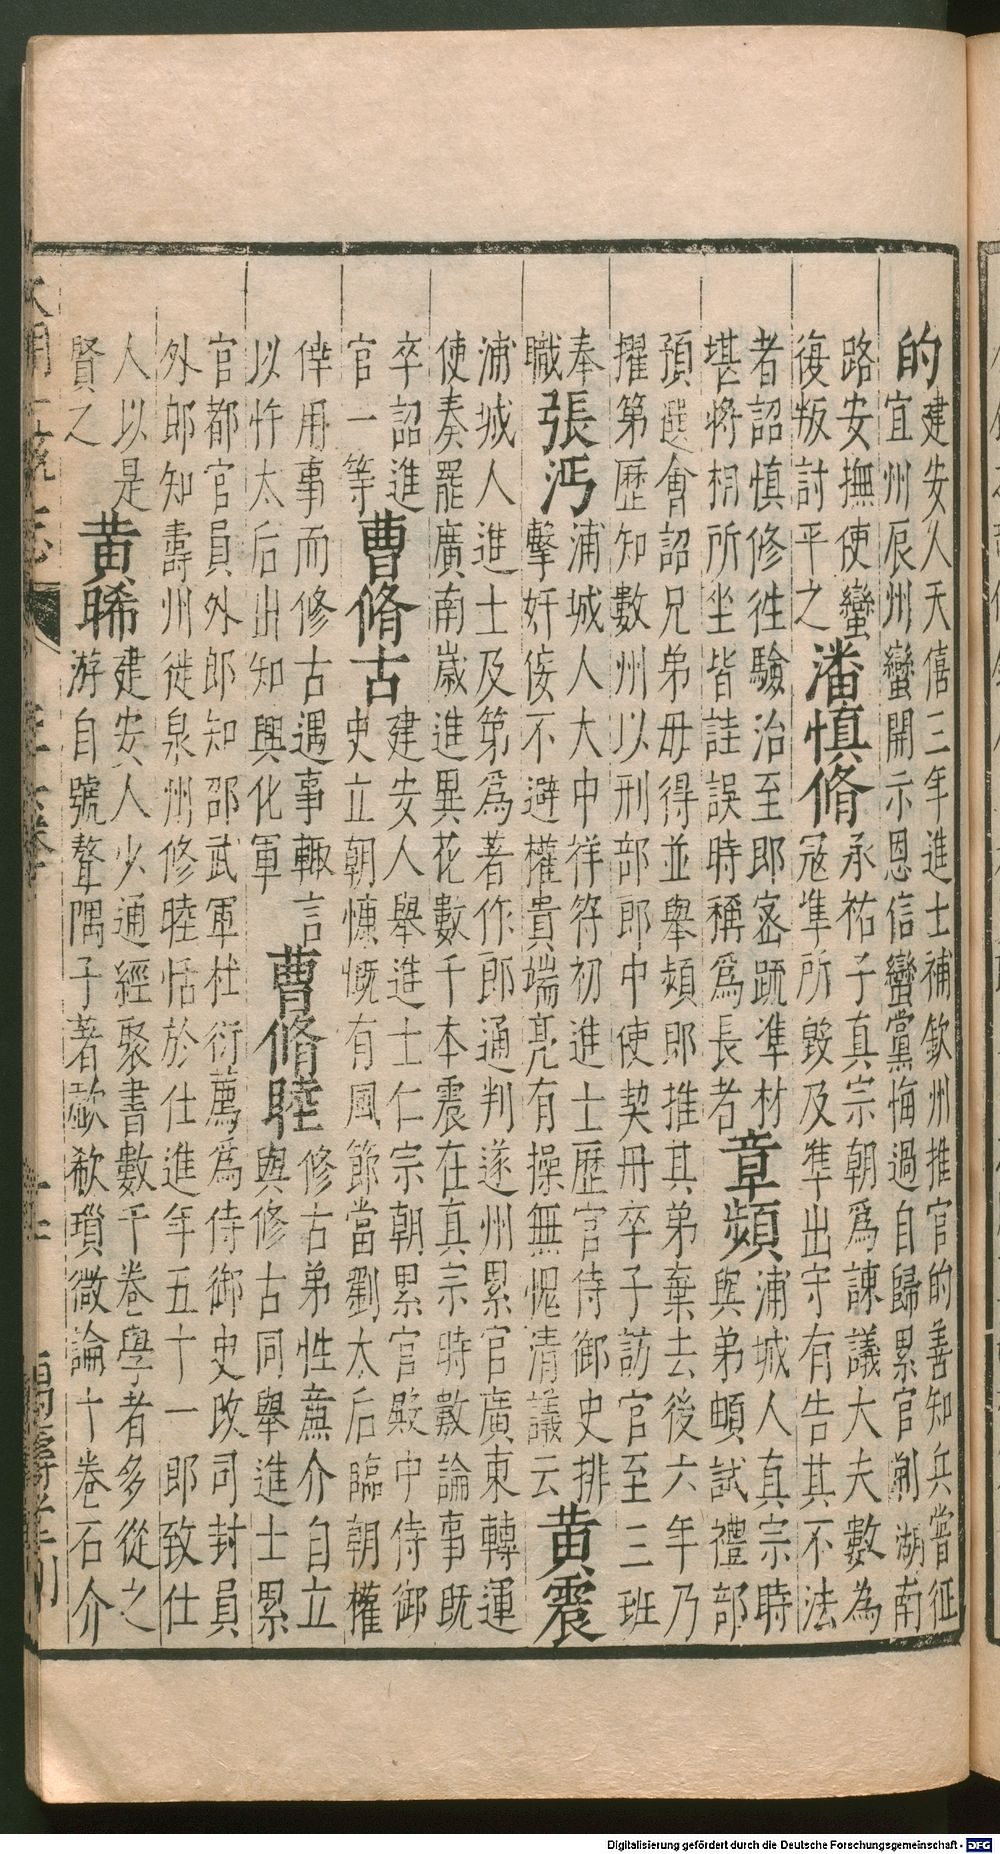 的建安人天僖三年進士補欽州推官的善知兵嘗征
宜州辰州蠻開示恩信蠻黨悔過自歸累官荆湖南
路安撫使蠻
復叛討平之
潘慎脩
承祐子真宗朝爲諫議大夫數為
寇準所毀及準出守有告其不法
者詔慎修徃驗治至即宻䟽準材
堪將相所坐皆詿誤時稱爲長者
章頻
浦城人真宗時
與弟頔試禮部
預選會詔兄弟毋得並舉頻即推其弟棄去後六年乃
擢第歷知數州以刑部郎中使契丹卒子訪官至三班
奉
職
張沔
浦城人大中祥符初進士歷官侍御史排
擊奸佞不避權貴端亮有操無愧清議云
黄震
浦城人進士及第爲著作郎通判遂州累官廣東轉運
使奏罷廣南歲進異花數千本震在真宗時數論事既
卒詔進
官一等
曹脩古
建安人舉進士仁宗朝累官殿中侍御
史立朝慷慨有風節當劉太后臨朝權
倖用事而修古遇事輙言
以忤太后出知興化軍
曹脩睦
修古弟性㢘介自立
與修古同舉進士累
官都官員外郎知邵武軍杜衍薦爲侍御史改司封員
外郎知壽州徙泉州修睦恬於仕進年五十一即致仕
人以是
賢之
黄晞
建安人少通經聚書數千卷學者多從之
游自號聱隅子著歔欷瑣微論十卷石介
大明一統志
Digitalisierung gefördert durch die Deutsche Forschungsgemeinschaft - DFG